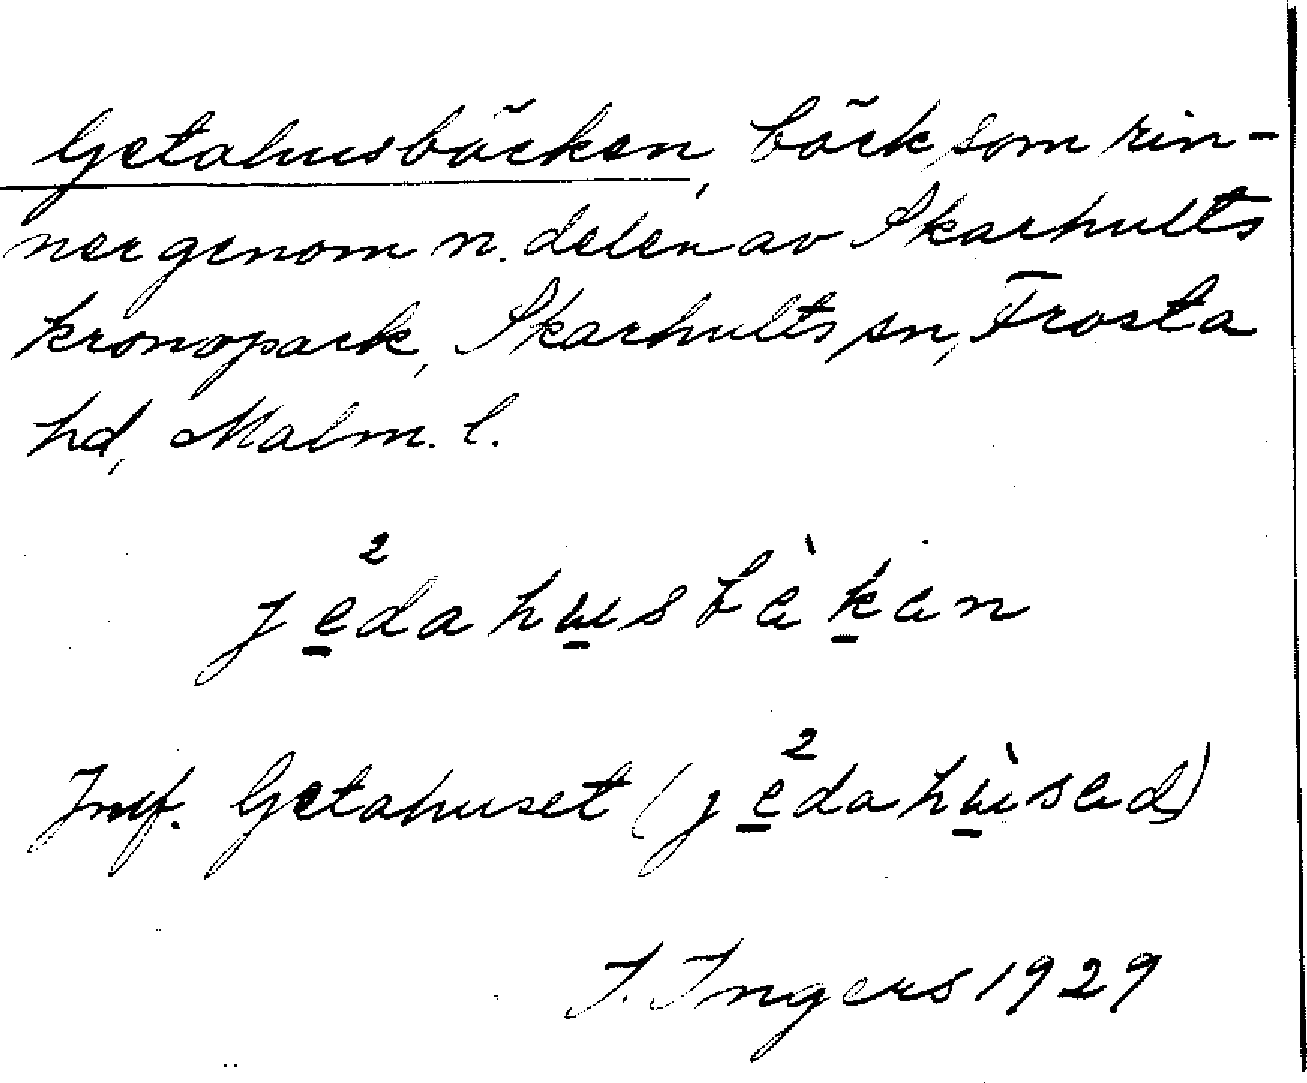 Getahusbäcken, bäck som rin-
ner genom n. delen av Skarhults
kronopark, Skarhults sn, Frosta
hd, Malm. l.
j e̠²dahu̠sbàk̠an
Jmf. Getahuset (j e̠²dahù̠sad)
I. Ingers 1929